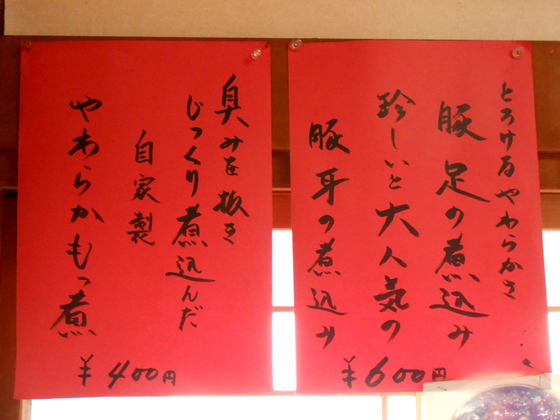 とろけるやわらかさ
豚足の煮込み
珍しいと大人気の
豚耳の煮込み
¥600円
臭みを抜き
じっくり煮込んだ
自家製
やわらかもつ煮
¥400円